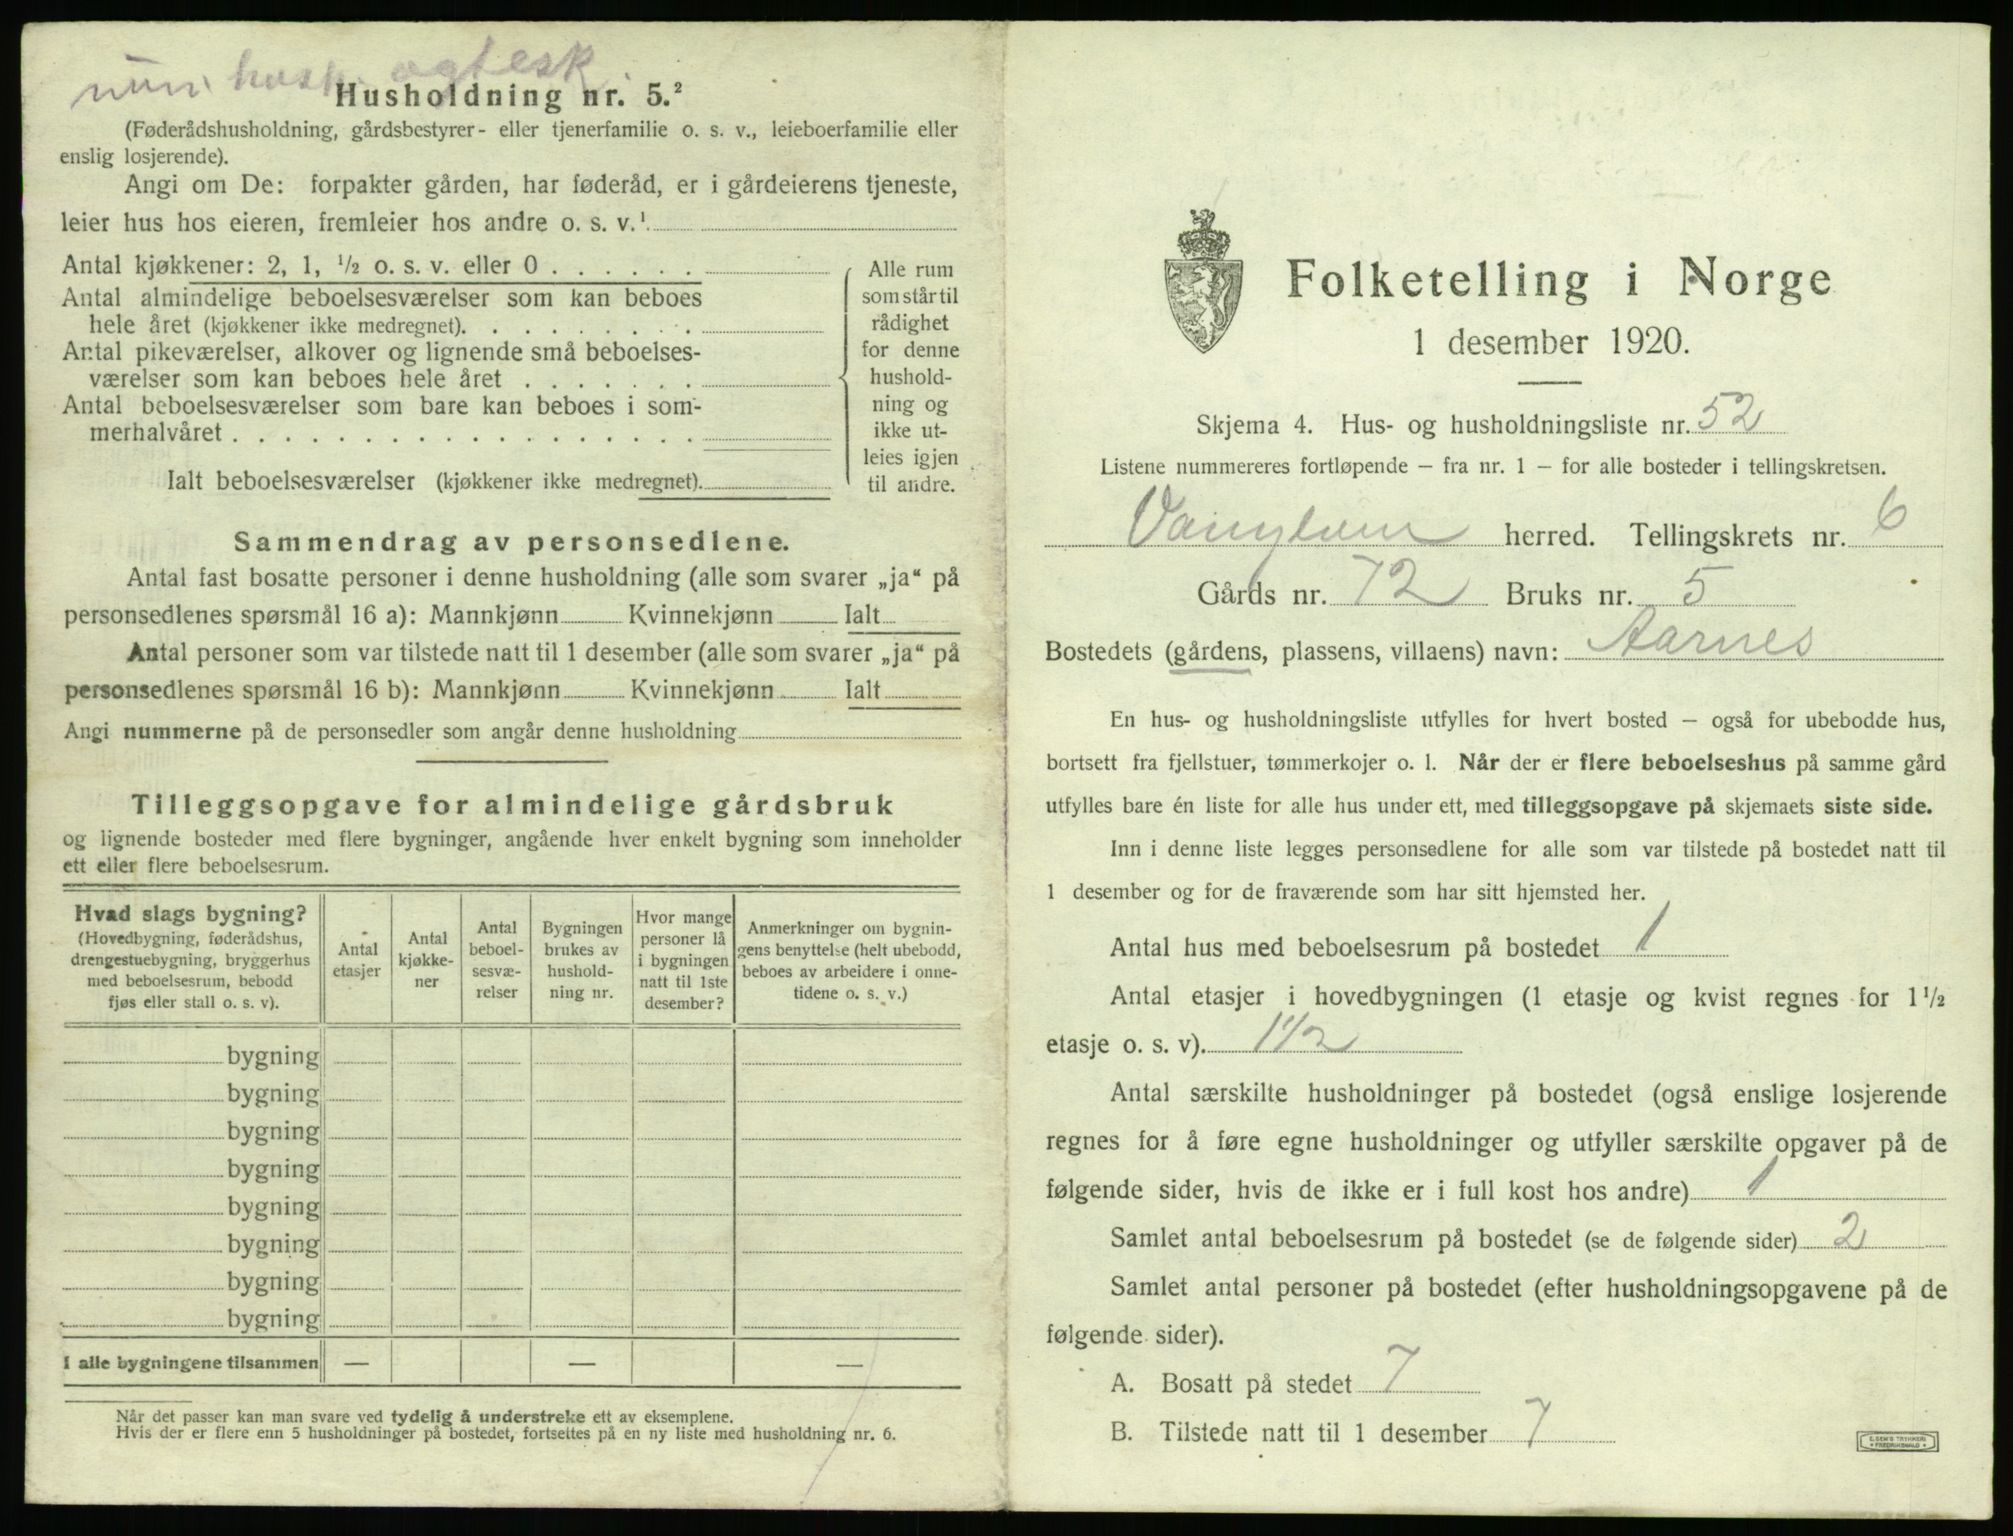 Husholdning nr. 5.²
(Føderådshusholdning, gårdsbestyrer- eller tjenerfamilie o. s. v., leieboerfamilie eller
enslig losjerende).
Angi om De: forpakter gården, har føderåd, er i gårdeierens tjeneste,
leier hus hos eieren, fremleier hos andre o. s. v.¹
Antal kjøkkener: 2, 1, ½ o. s. v. eller 0
Antal almindelige beboelsesværelser som kan beboes
hele året (kjøkkener ikke medregnet).
Antal pikeværelser, alkover og lignende små beboelses-
værelser som kan beboes hele året
Antal beboelsesværelser som bare kan beboes i som-
merhalvåret
Ialt beboelsesværelser (kjøkkener ikke medregnet).
Alle rum
som står til
rådighet
for denne
hushold-
ning og
ikke ut-
leies igjen
til andre.
Sammendrag av personsedlene.
Antal fast bosatte personer i denne husholdning (alle som svarer „ja“ på
personsedlenes spørsmål 16 a): Mannkjønn Kvinnekjønn Ialt
Antal personer som var tilstede natt til 1 desember (alle som svarer „ja“ på
personsedlenes spørsmål 16 b): Mannkjønn Kvinnekjønn Ialt
Angi nummerne på de personsedler som angår denne husholdning
Tilleggsopgave for almindelige gårdsbruk
og lignende bosteder med flere bygninger, angående hver enkelt bygning som inneholder
ett eller flere beboelsesrum.
Hvad slags bygning?
(Hovedbygning, føderådshus,
drengestuebygning, bryggerhus
med beboelsesrum, bebodd
fjøs eller stall o. s. v).
Antal
etasjer
Antal
kjøkke-
ner
Antal
beboel-
sesvæ-
relser
Bygningen
brukes av
hushold-
ning nr.
Hvor mange
personer lå
i bygningen
natt til 1ste
desember?
Anmerkninger om bygnin-
gens benyttelse (helt ubebodd,
beboes av arbeidere i onne-
tidene o. s. v.)
bygning
bygning
bygning
bygning
bygning
bygning
bygning
bygning
I alle bygningene tilsammen — — —
Når det passer kan man svare ved tydelig å understreke ett av eksemplene.
Hvis der er flere enn 5 husholdninger på bostedet, fortsettes på en ny liste med husholdning nr. 6.
Folketelling i Norge
1 desember 1920.
Skjema 4. Hus- og husholdningsliste nr. 52
Listene nummereres fortløpende – fra nr. 1 – for alle bosteder i tellingskretsen.
Vanylven herred. Tellingskrets nr. 6
Gårds nr. 72 Bruks nr. 5
Bostedets (gårdens, plassens, villaens) navn: Aarnes
En hus- og husholdningsliste utfylles for hvert bosted – også for ubebodde hus,
bortsett fra fjellstuer, tømmerkojer o. l. Når der er flere beboelseshus på samme gård
utfylles bare én liste for alle hus under ett, med tilleggsopgave på skjemaets siste side.
Inn i denne liste legges personsedlene for alle som var tilstede på bostedet natt til
1 desember og for de fraværende som har sitt hjemsted her.
Antal hus med beboelsesrum på bostedet 1
Antal etasjer i hovedbygningen (1 etasje og kvist regnes for 1½
etasje o. s. v). 1½
Antal særskilte husholdninger på bostedet (også enslige losjerende
regnes for å føre egne husholdninger og utfyller særskilte opgaver på de
følgende sider, hvis de ikke er i full kost hos andre) 1
Samlet antal beboelsesrum på bostedet (se de følgende sider) 2
Samlet antal personer på bostedet (efter husholdningsopgavene på de
følgende sider).
A. Bosatt på stedet 7
B. Tilstede natt til 1 desember 7